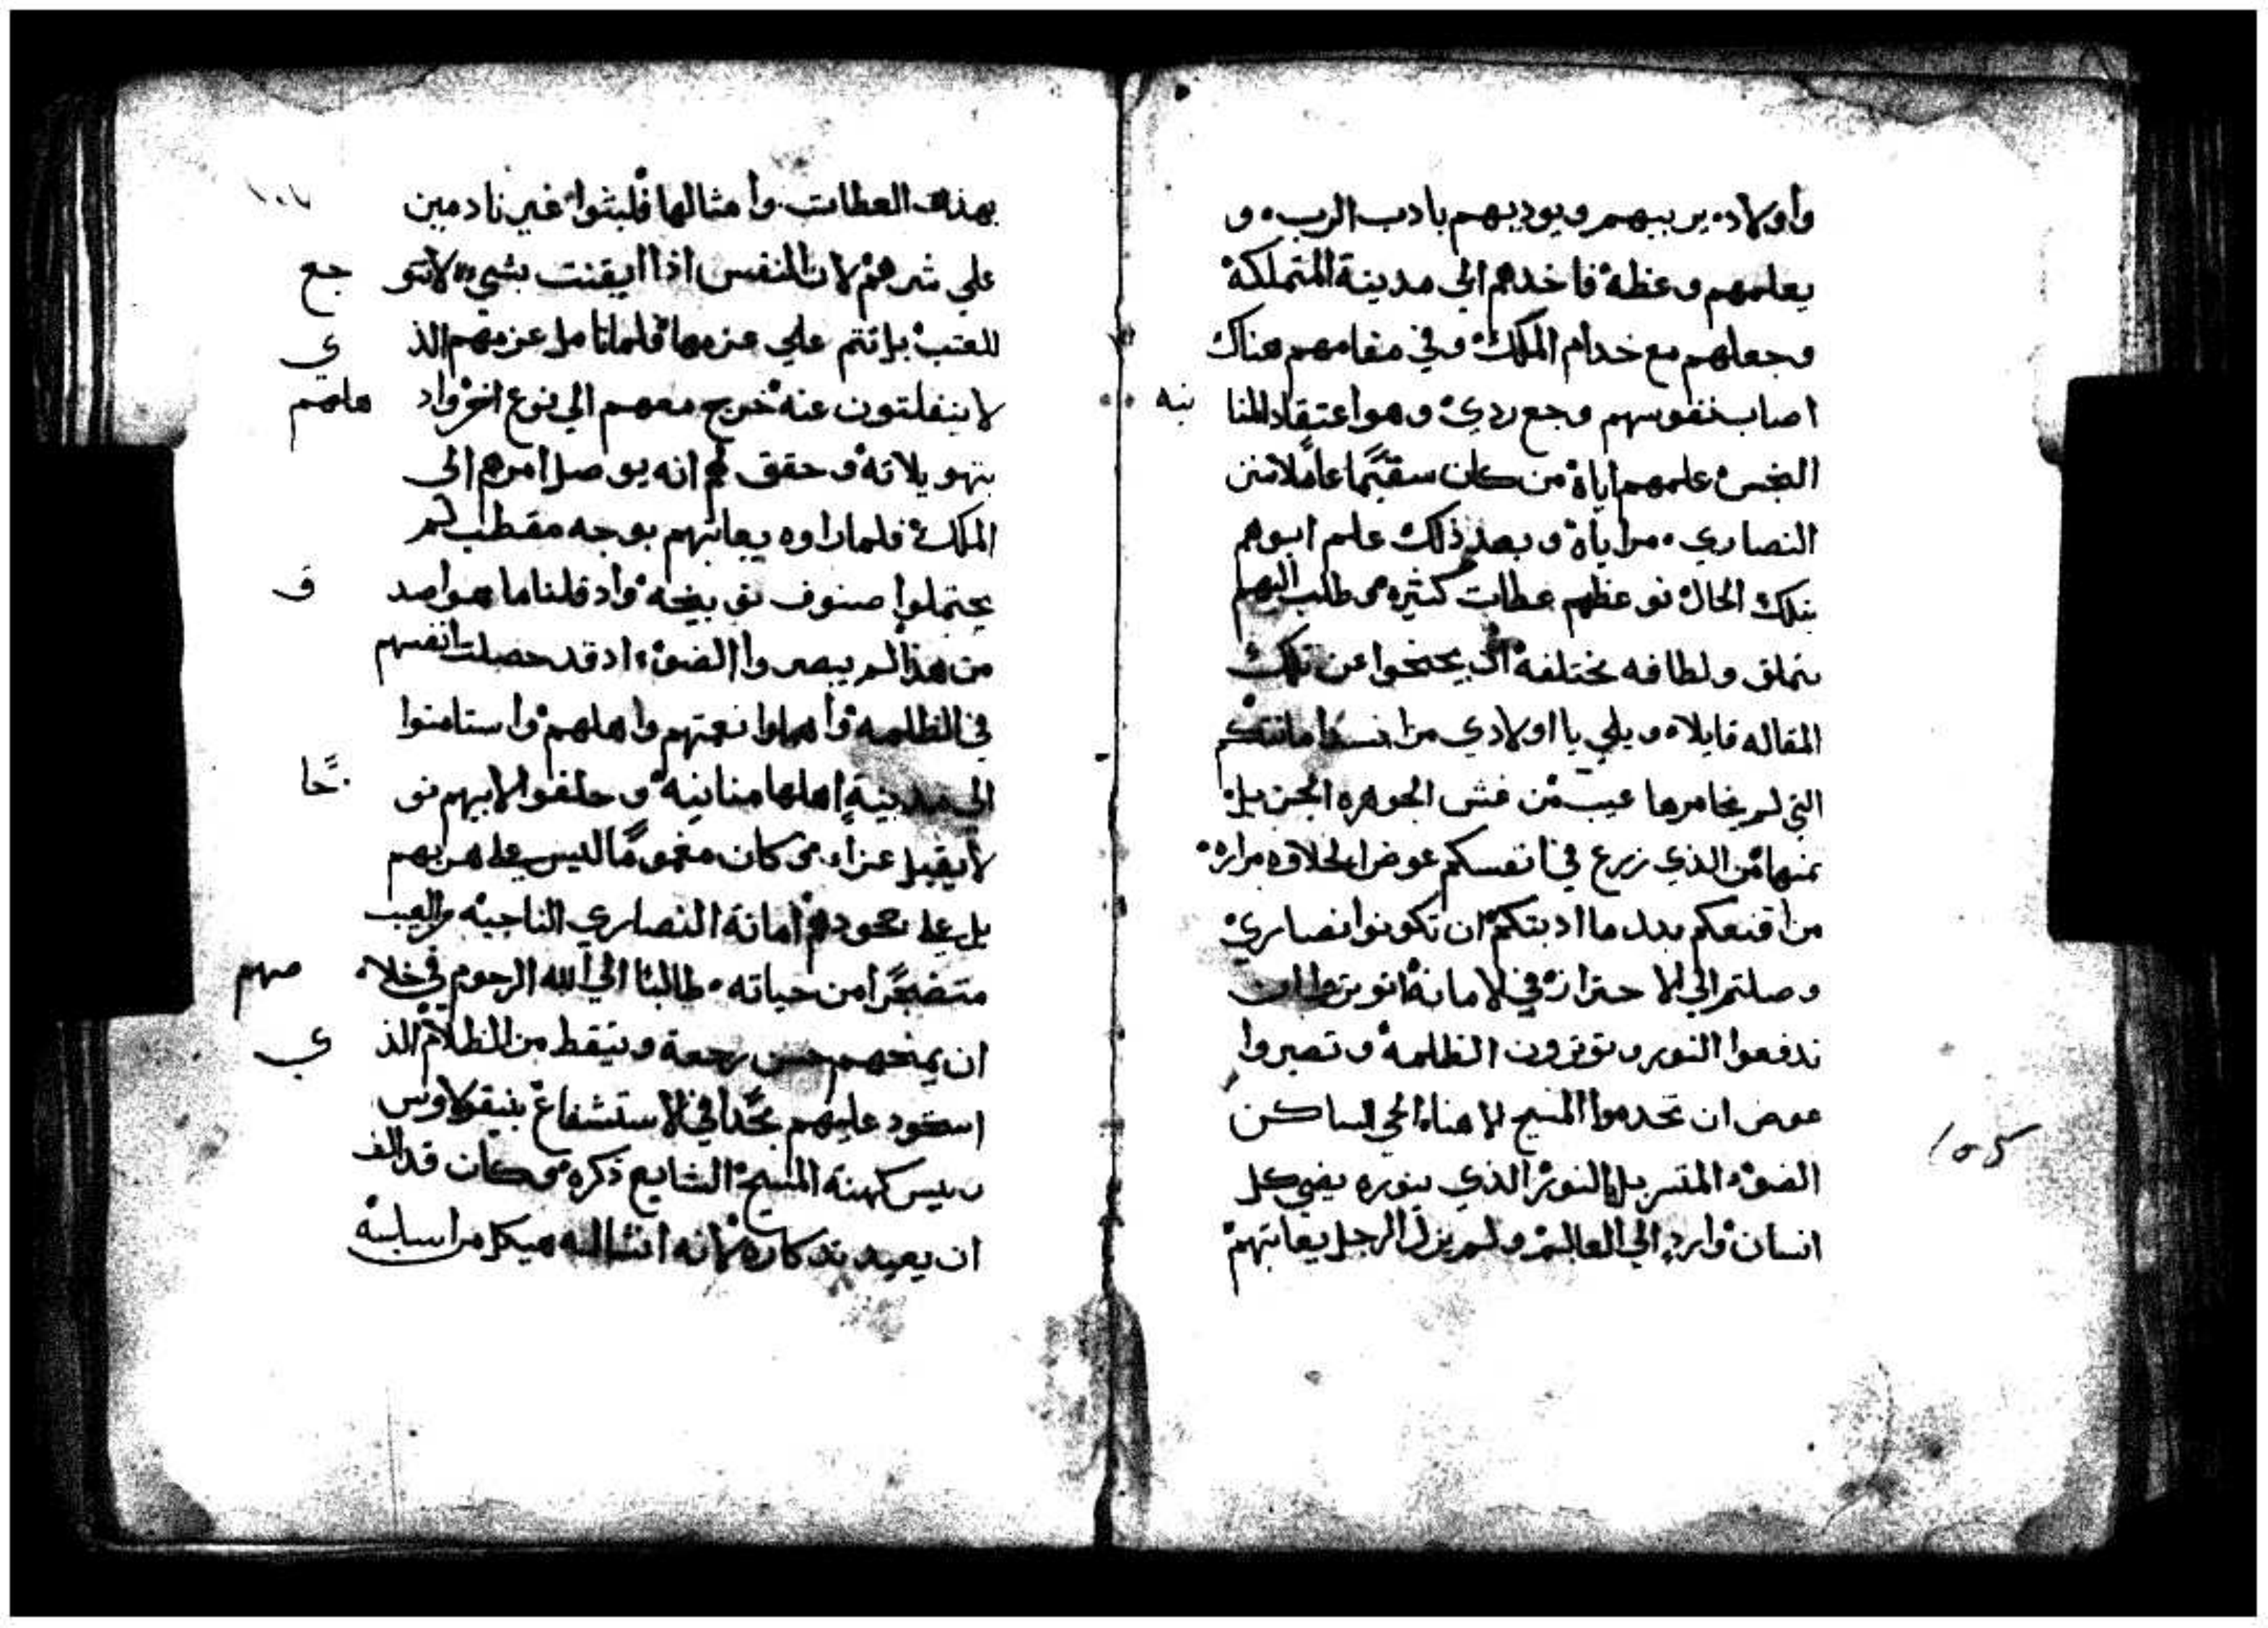 وأولاده يربيهم ويوديهم بادب الرب، و
يعلمهم وعظه فاخدهم الي مدينة المتملكة
وجعلهم مع خدام الملك وفي مقامهم هناك
اصاب نفوسهم وجع ردي وهو اعتقاد المنا نيه
النجس علمهم اياة من كان سقيما عاملا
النصاري مراياة وبعد ذلك علم ابوهم
بتلك الحال نوعظهم عظات كثيره طلب اليهم
بتملق ولطافه مختلفه يجنحوا عن تلك
المقاله قايلا ويلي يا اولادي من افسد امانتكم
التي لم يخامرها عيب من غش الجوهره الجزيل
ثمنها من الذي زرع في انفسكم عوض الحلاوه مرارة
من اقنعكم بدل ما ادبتكم ان تكونوا نصاري
وصلتم الي الاحتراز في الامانة
تدفعوا النور وتوثرون الظلمة وتصيروا
عوض ان تخدموا المسيح الاهنا الحي الساكن
الضوء المتسربل النور الذي بنوره يضي كل
انسان وارد الي العالم ولم يزل الرجل يعاتبهم
١٠٧
بهذه العظات وأمثالها فلبثوا غير نادمين
علي شرهم لان النفس اذا ايقنت بشي لا تتو جع
للعتب بل تتم علي عزمها فلما تامل عزمهم الذ ي
لا ينفلتون عنه خرج معهم الي نوع اخر واد هلهم
بتهويلاته وحقق لهم انه يوصل امرهم الي
الملك فلما راوه يعاتبهم بوجه مقطب لم
يحتملوا صنوف توبيخه واد قلنا ما هو اصد ق
من هذا لم يبصروا الضوء اد قد حصلت انفسهم
في الظلمه وأهملوا نعمتهم واهلهم وأستامنوا
الي مدينة اهلها منانيه وخلفوا لابيهم نو حا
لا يقبل عزاء كان مغموما ليس علي هربهم
بل علي جحودهم امانة النصاري الناجيه
متضجرا من حياته طالبا الي الله الرحوم في خلا صهم
ان يمنحهم حسن رجعة وتيقظ من الظلام الذ ي
استحود عليهم مجدا في الاستشفاع بنيقولاوس
رييس كهنة المسيح الشايع ذكره كان قد الف
ان يعيد تدكاره لانه انشا له هيكل